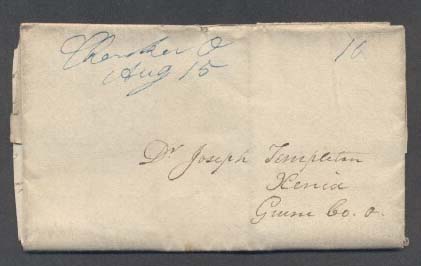 Cherokee O
Aug 15
10
Dr Joseph Templeton
Xenia
Greene Co. O.